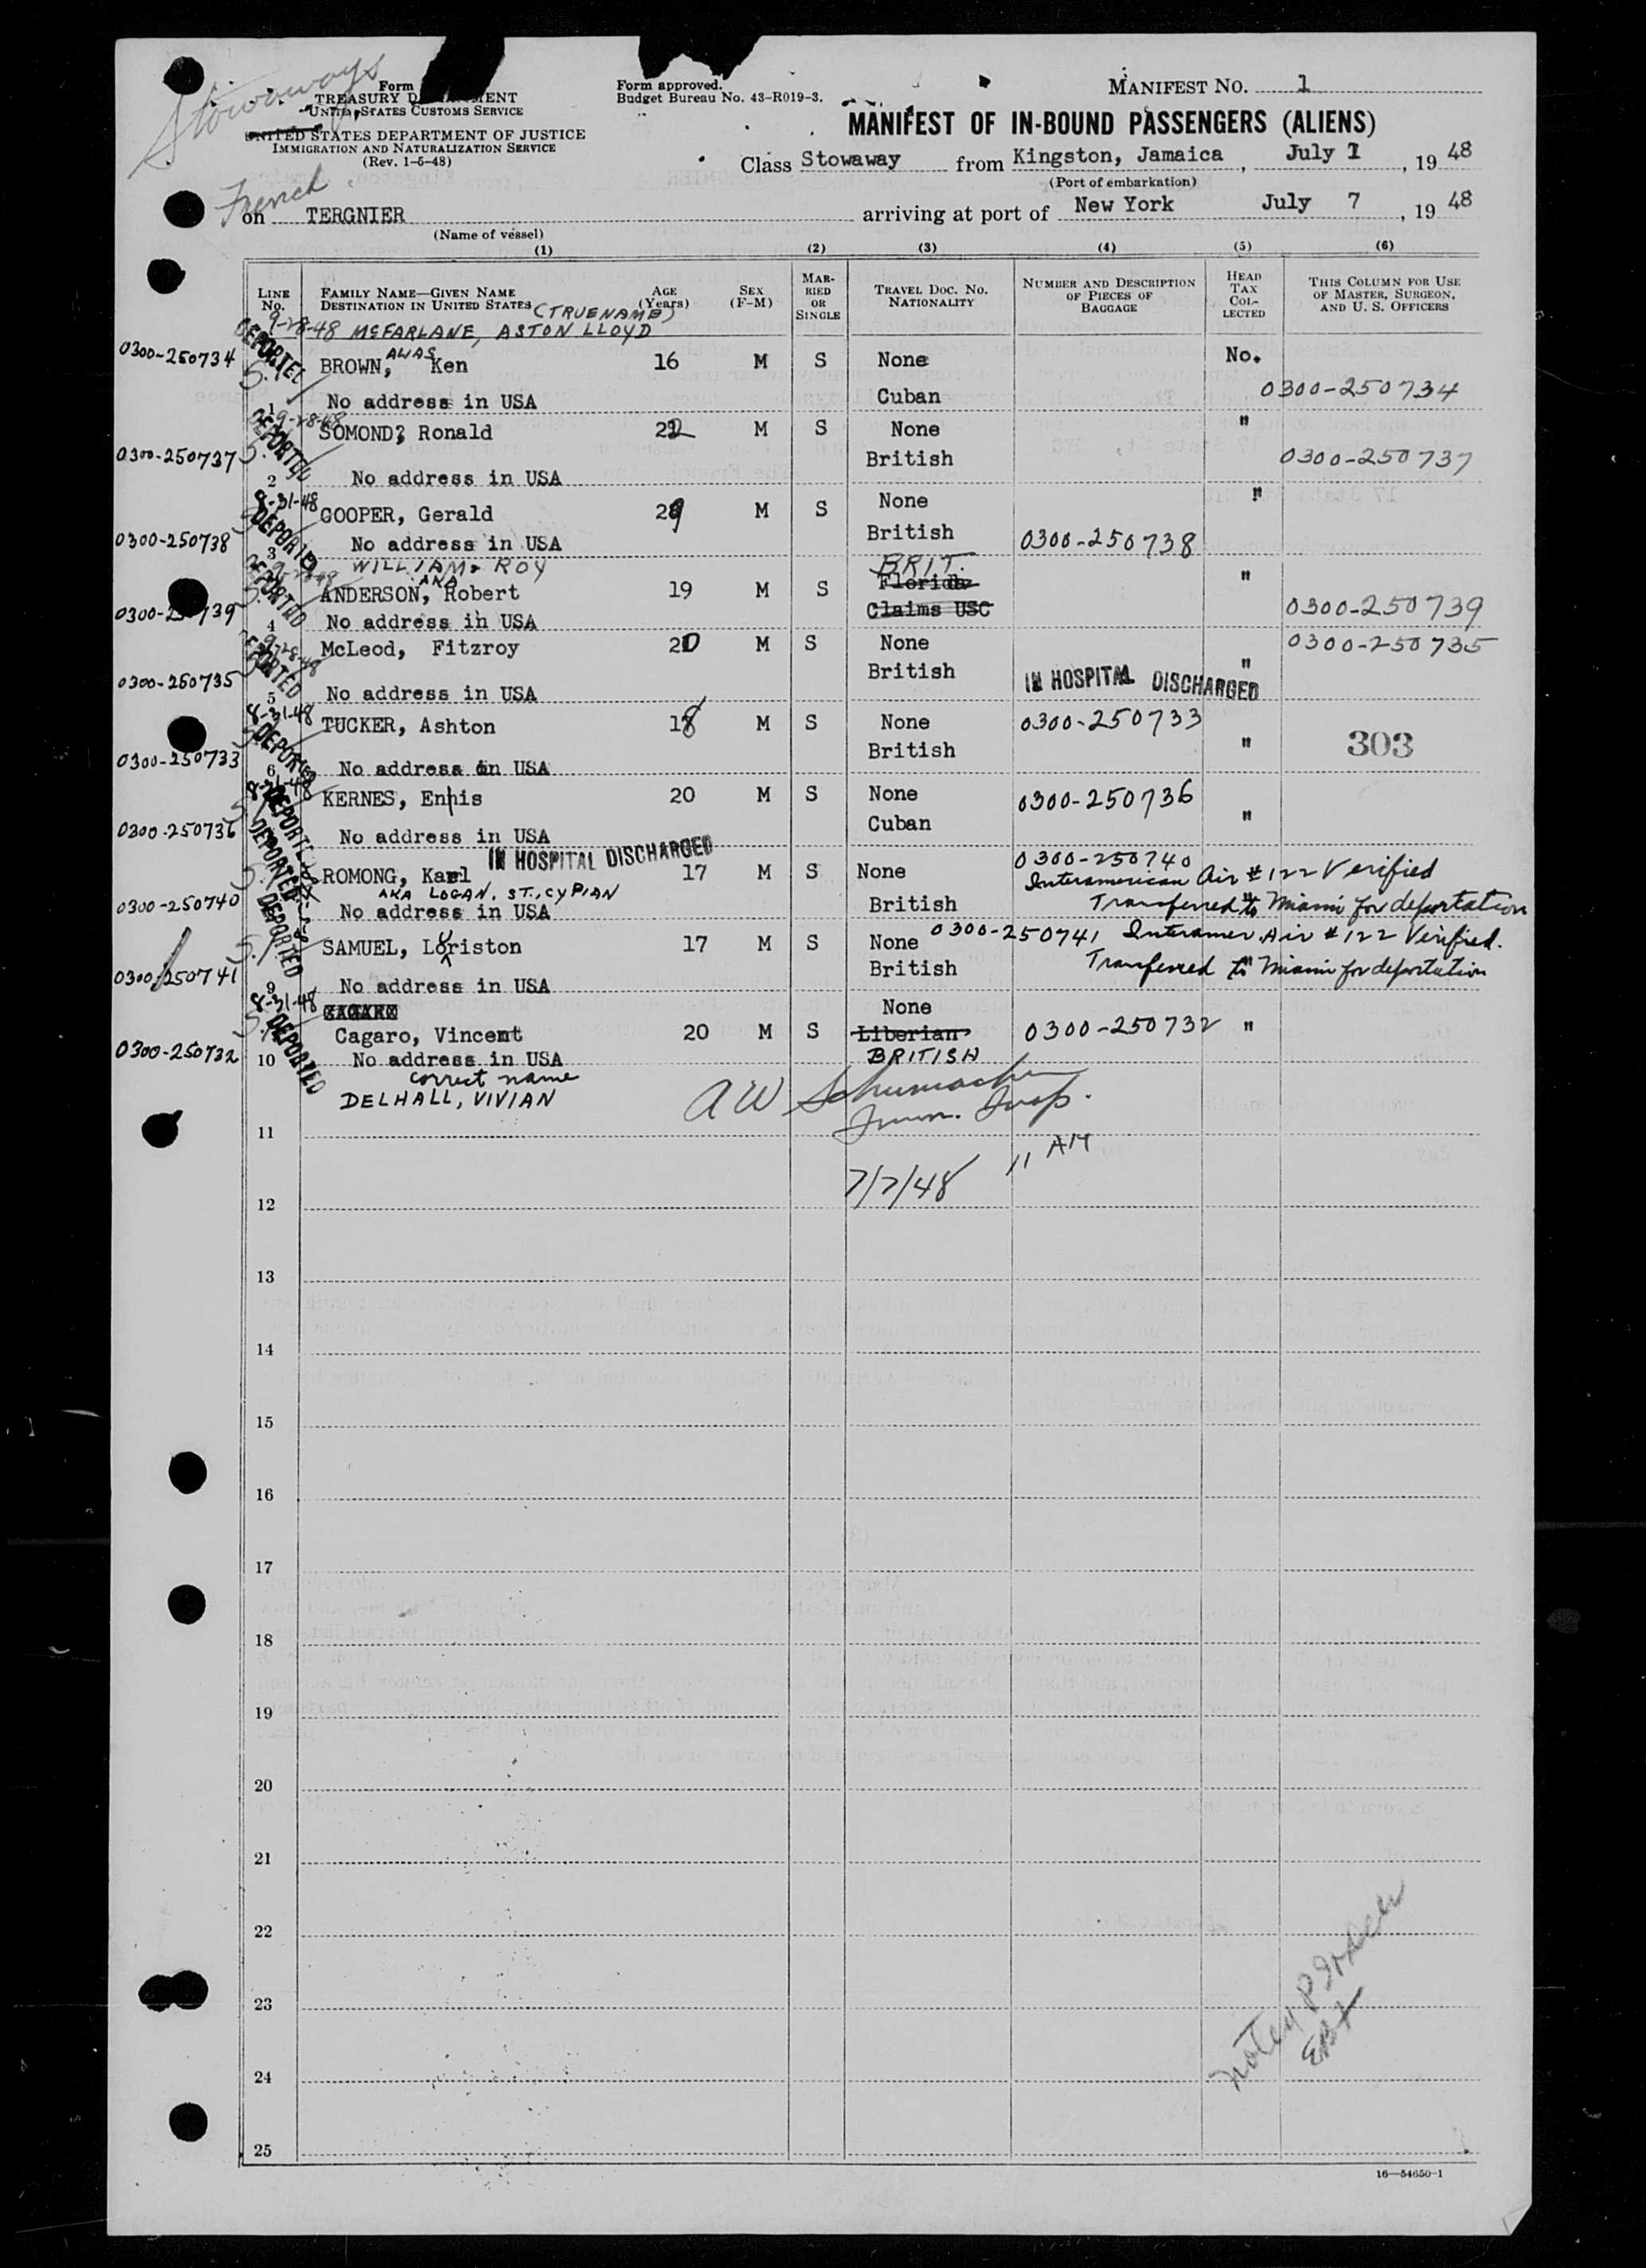 Stowaways
Form
TREASURY DEPARTMENT
UNITED STATES CUSTOMS SERVICE
UNITED STATES DEPARTMENT OF JUSTICE
IMMIGRATION AND NATURALIZATION SERVICE
(Rev. 1-5-48)
Form approved.
Budget Bureau No. 43-R019-3.
MANIFEST NO. 1
MANIFEST OF IN-BOUND PASSENGERS (ALIENS)
Class Stowaway from Kingston, Jamaica, July 1, 19 48
(Port of embarkation)
French
on TERGNIER arriving at port of New York July 7, 19 48
(Name of vessel)
(1) (2) (3) (4) (5) (6)
LINE NO. FAMILY NAME—GIVEN NAME DESTINATION IN UNITED STATES AGE (Years) SEX (F-M) MARRIED OR SINGLE TRAVEL DOC. NO. NATIONALITY NUMBER AND DESCRIPTION OF PIECES OF BAGGAGE HEAD TAX COLLECTED THIS COLUMN FOR USE OF MASTER, SURGEON, AND U. S. OFFICERS
(TRUE NAME)
9-28-48 MCFARLANE, ASTON LLOYD
0300-250734 DEPORTED BROWN, ALIAS Ken 16 M S None No.
1 No address in USA Cuban 0300-250734
9-28-48 DEPORTED SOMOND, Ronald 22 M S None "
0300-250737 British 0300-250737
2 No address in USA
8-31-48 DEPORTED COOPER, Gerald 29 M S None "
0300-250738 3 No address in USA British 0300-250738
WILLIAMS ROY BRIT.
9-28-48 DEPORTED ANDERSON, AKA Robert 19 M S Florida "
0300-250739 4 No address in USA Claims USC 0300-250739
9-28-48 DEPORTED McLeod, Fitzroy 20 M S None 0300-250735
0300-250735 British IN HOSPITAL DISCHARGED "
5 No address in USA
8-31-48 DEPORTED TUCKER, Ashton 18 M S None 0300-250733
0300-250733 British " 303
6 No address in USA
8-31-48 DEPORTED KERNES, Ennis 20 M S None 0300-250736
0300-250736 Cuban "
No address in USA
IN HOSPITAL DISCHARGED 0300-250740
DEPORTED ROMONG, Karl 17 M S None Interamerican Air #122 Verified
AKA LOGAN, ST., CYPIAN
0300-250740 No address in USA British Transferred to Miami for deportation
DEPORTED SAMUEL, Loriston 17 M S None 0300-250741 Interamer. Air #122 Verified.
0300-250741 British Transferred to Miami for deportation
9 No address in USA
8-31-48 DEPORTED CAGARO None
Cagaro, Vincent 20 M S Liberian 0300-250732 "
0300-250732 10 No address in USA BRITISH
correct name
DELHALL, VIVIAN
A W Schumacher
Imm. Insp.
11
7/7/48 11 AM
12
13
14
15
16
17
18
19
20
21
22
23
24
25
16—54650-1